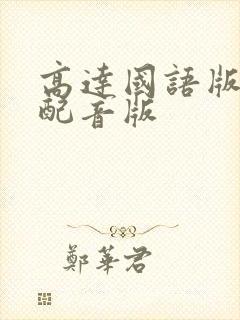 高達國語版
配音版
鄭華君